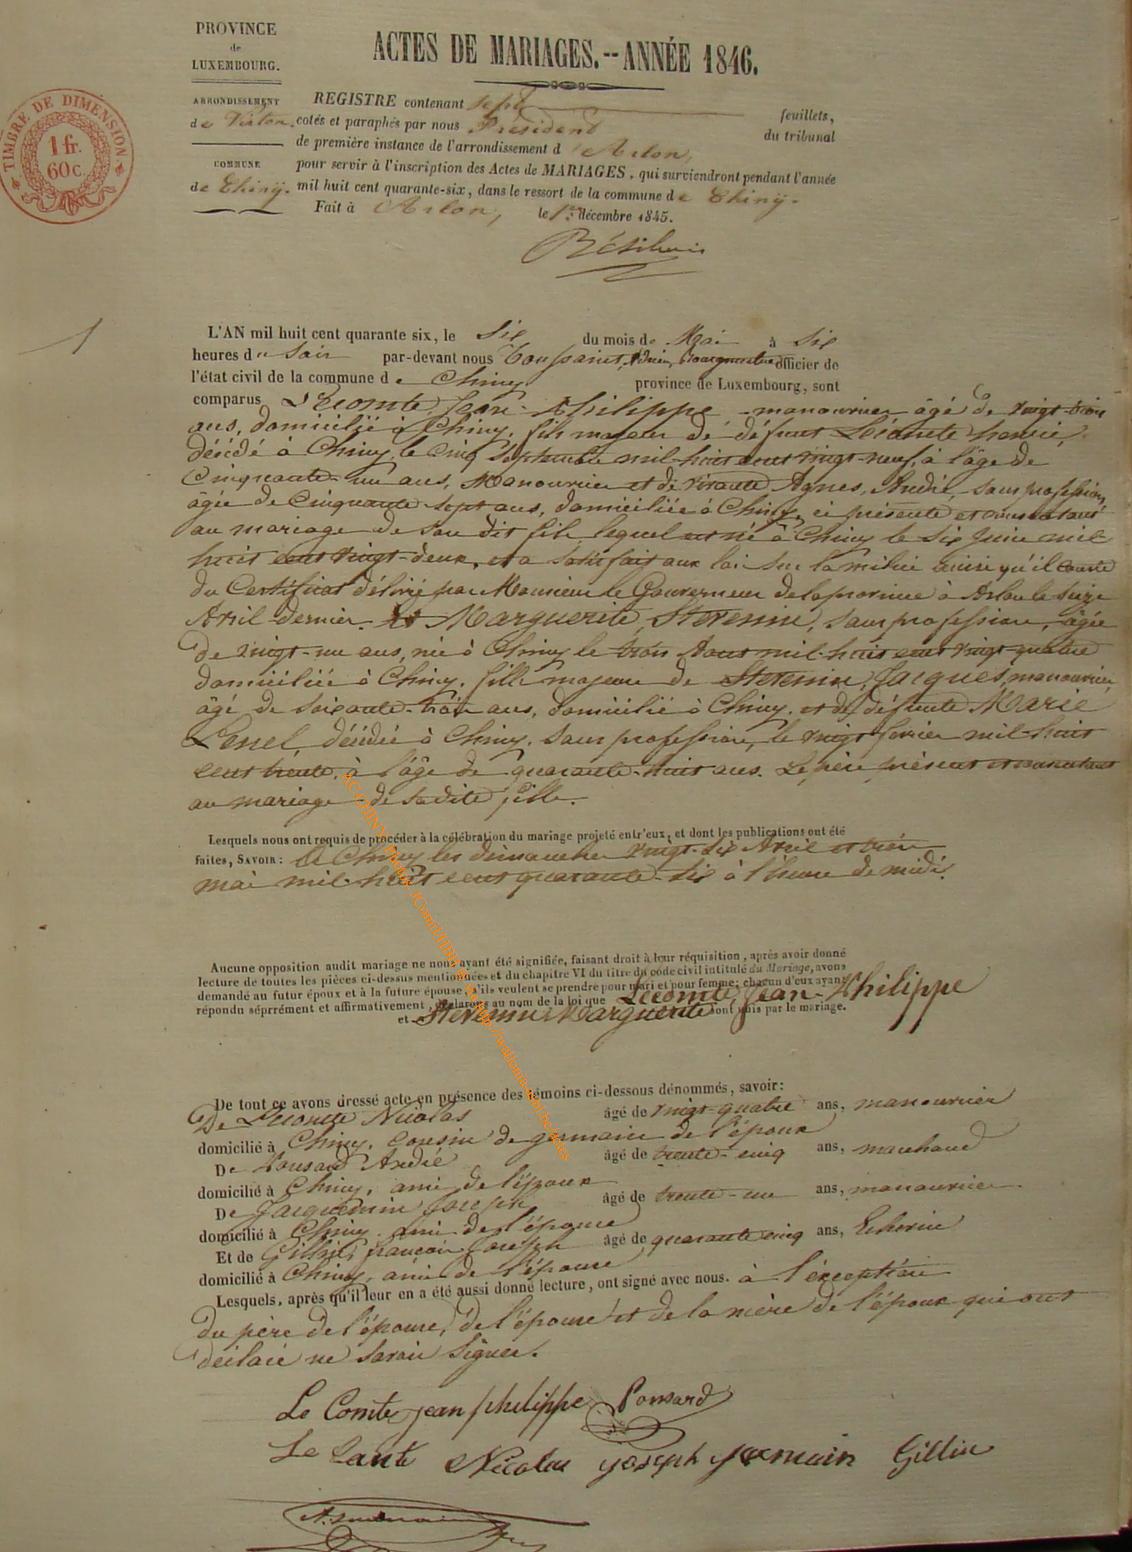 PROVINCE
de
LUXEMBOURG.
ACTES DE MARIAGES.--ANNÉE 1846.
TIMBRE DE DIMENSION
1 fr.
60 c.
ARRONDISSEMENT
de Virton.
COMMUNE
de Chiny.
REGISTRE contenant sept feuillets,
cotés et paraphés par nous Président du tribunal
de première instance de l'arrondissement d'Arlon,
pour servir à l'inscription des Actes de MARIAGES, qui surviendront pendant l'année
mil huit cent quarante-six, dans le ressort de la commune de Chiny.
Fait à Arlon, le 1er décembre 1845.
1
L'AN mil huit cent quarante six, le Six du mois de Mai à Six
heures du Soir par-devant nous Toussaint, officier de
l'état civil de la commune de Chiny province de Luxembourg, sont
comparus Lecomte Jean-Philippe manouvrier âgé de vingt trois
ans, domicilié à Chiny, fils majeur de défunt Lecomte
décédé à Chiny le Cinq Septembre mil-huit cent vingt-neuf, à l'âge de
Cinquante-un ans, Manouvrier et de vivante Agnes, André, sans profession,
âgée de Cinquante-sept ans, domiciliée à Chiny, ci présente et consentant
au mariage de son dit fils, lequel est né à Chiny le Six Juin mil
huit cent vingt-deux, et a satisfait aux lois sur la milice ainsi qu'il conste
du Certificat délivré par Monsieur le Gouverneur de la province à Arlon le Seize
Avril dernier. Et Marguerite Stevenin, sans profession, âgée
de vingt-un ans, née à Chiny le trois Aout mil-huit cent vingt-quatre
domiciliée à Chiny, fille majeure de Stevenin, Jacques, manouvrier
âgé de soixante-trois ans, domicilié à Chiny, et de défunte Marie
décédée à Chiny, sans profession, le vingt fevrier mil-huit
cent trente, à l'âge de quarante-huit ans. Le père présent et consentant
au mariage de sa dite fille.
Lesquels nous ont requis de procéder à la célébration du mariage projeté entr'eux, et dont les publications ont été
faites, SAVOIR: A Chiny les dimanches vingt-six Avril et trois
mai mil-huit cent quarante-six à l'heure de midi.
Aucune opposition audit mariage ne nous ayant été signifiée, faisant droit à leur réquisition, après avoir donné
lecture de toutes les pièces ci-dessus mentionnées et du chapitre VI du titre du code civil intitulé du Mariage, avons
demandé au futur époux et à la future épouse s'ils veulent se prendre pour mari et pour femme; chacun d'eux ayant
répondu séprrément et affirmativement, déclarons au nom de la loi que Lecomte, Jean-Philippe
et Stevenin Marguerite sont unis par le mariage.
De tout ce avons dressé acte en présence des témoins ci-dessous dénommés, savoir:
De Lecomte Nicolas âgé de vingt-quatre ans, manouvrier
domicilié à Chiny, cousin de germain de l'époux
De Ponsard André âgé de trente-cinq ans, marchand
domicilié à Chiny, ami de l'époux
De Jacquemin Joseph âgé de trente-un ans, manouvrier
domicilié à Chiny, ami de l'épouse
Et de françois Joseph âgé de quarante cinq ans, Echevin
domicilié à Chiny, ami de l'épouse
Lesquels, après qu'il leur en a été aussi donné lecture, ont signé avec nous. à l'exception
du père de l'épouse, de l'épouse et de la mère de l'époux qui ont
déclaré ne savoir signer.
Le Comte jean philippe Ponsard
Le Nicolas joseph Gillin